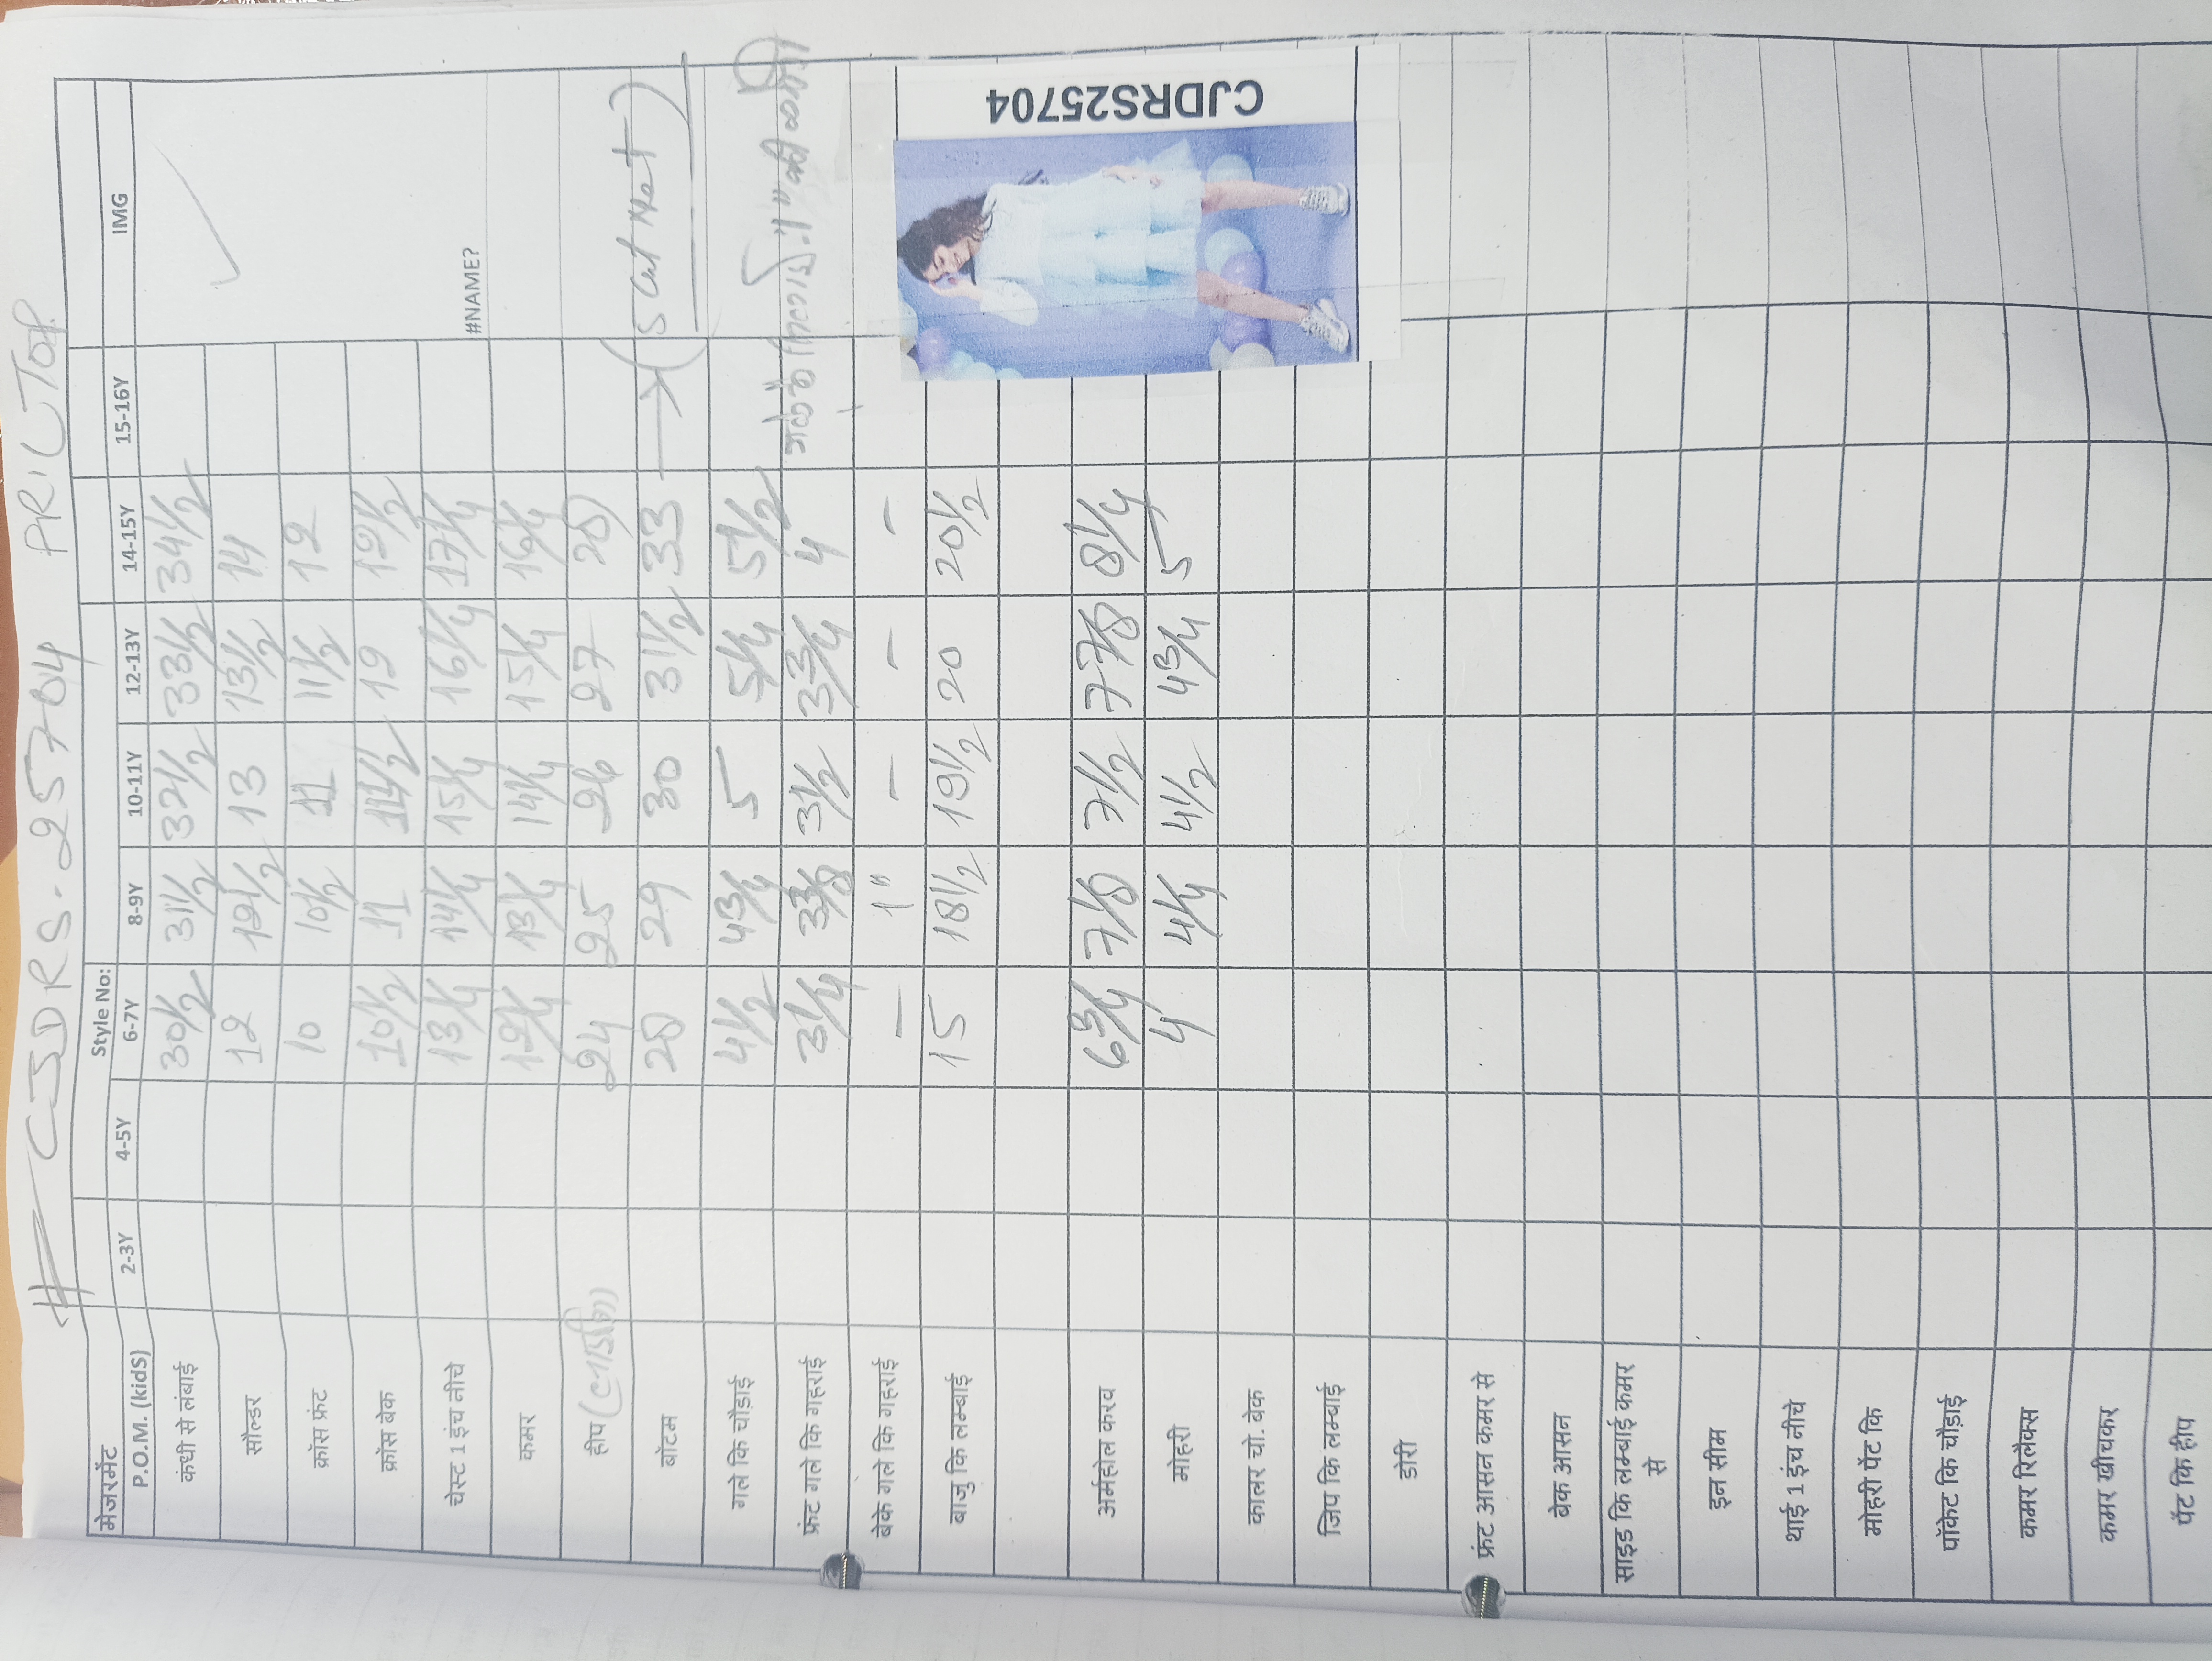 # CJDRS-25704 PRIUTOP
मेजरमेंट Style No: IMG
P.O.M. (kidS) 2-3Y 4-5Y 6-7Y 8-9Y 10-11Y 12-13Y 14-15Y 15-16Y
कंधी से लंबाई 30 1/2 31 1/2 32 1/2 33 1/2 34 1/2
सौल्डर 12 12 1/2 13 13 1/2 14
क्रॉस फ्रंट 10 10 1/2 11 11 1/2 12
क्रॉस बेक 10 1/2 11 11 1/2 12 12 1/2
चेस्ट 1 इंच नीचे 13 1/4 14 1/4 15 1/4 16 1/4 17 1/4
कमर 12 1/4 13 1/4 14 1/4 15 1/4 16 1/4
#NAME?
हीप 24 25 26 27 28
बोटम 28 29 30 31 1/2 33 → (5 Cut Net)
गले कि चौड़ाई 4 1/2 4 3/4 5 5 1/4 5 1/2
फ्रंट गले कि गहराई 3 1/4 3 3/8 3 1/2 3 3/4 4
बेके गले कि गहराई - 1" - - -
बाजु कि लम्बाई 15 18 1/2 19 1/2 20 20 1/2
CJDRS25704
अर्महोल करव 6 3/4 7 1/8 7 1/2 7 7/8 8 1/4
मोहरी 4 4 1/4 4 1/2 4 3/4 5
कालर चो. बेक
जिप कि लम्बाई
डोरी
फ्रंट आसन कमर से
बेक आसन
साइड कि लम्बाई कमर
से
इन सीम
थाई 1 इंच नीचे
मोहरी पेंट कि
पॉकेट कि चौड़ाई
कमर रिलैक्स
कमर खीचकर
पेंट कि हीप